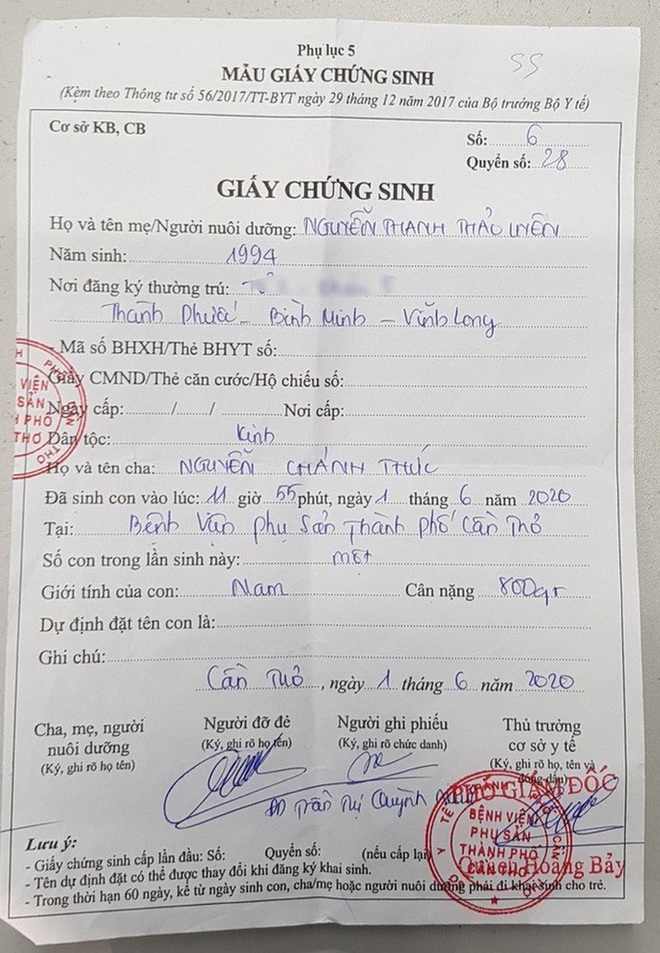 SS
Phụ lục 5
MẪU GIẤY CHỨNG SINH
(Kèm theo Thông tư số 56/2017/TT-BYT ngày 29 tháng 12 năm 2017 của Bộ trưởng Bộ Y tế)
Cơ sở KB, CB
Số: 6
Quyển số: 28
GIẤY CHỨNG SINH
Họ và tên mẹ/Người nuôi dưỡng: NGUYỄN THANH THẢO UYÊN
Năm sinh: 1994
Nơi đăng ký thường trú: Tổ
Thành Phước - Bình Minh - Vĩnh Long
Mã số BHXH/Thẻ BHYT số:
Giấy CMND/Thẻ căn cước/Hộ chiếu số:
Ngày cấp: / / Nơi cấp:
Dân tộc: Kinh
Họ và tên cha: NGUYỄN CHÁNH THỨC
Đã sinh con vào lúc: 11 giờ 55 phút, ngày 1 tháng 6 năm 2020
Tại: Bệnh Viện phụ Sản Thành phố Cần Thơ
Số con trong lần sinh này: một
Giới tính của con: Nam Cân nặng 800gr
Dự định đặt tên con là:
Ghi chú:
Cần Thơ, ngày 1 tháng 6 năm 2020
Cha, mẹ, người nuôi dưỡng
(Ký, ghi rõ họ tên)
Người đỡ đẻ
(Ký, ghi rõ họ tên)
Người ghi phiếu
(Ký, ghi rõ chức danh)
Thủ trưởng cơ sở y tế
(Ký, ghi rõ họ, tên và đóng dấu)
Trần Thị Quỳnh
PHÓ GIÁM ĐỐC
BỆNH VIỆN
PHỤ SẢN
THÀNH PHỐ
CẦN THƠ
Hoàng Bảy
Lưu ý:
- Giấy chứng sinh cấp lần đầu: Số: Quyển số: (nếu cấp lại)
- Tên dự định đặt có thể được thay đổi khi đăng ký khai sinh.
- Trong thời hạn 60 ngày, kể từ ngày sinh con, cha/mẹ hoặc người nuôi dưỡng phải đi khai sinh cho trẻ.